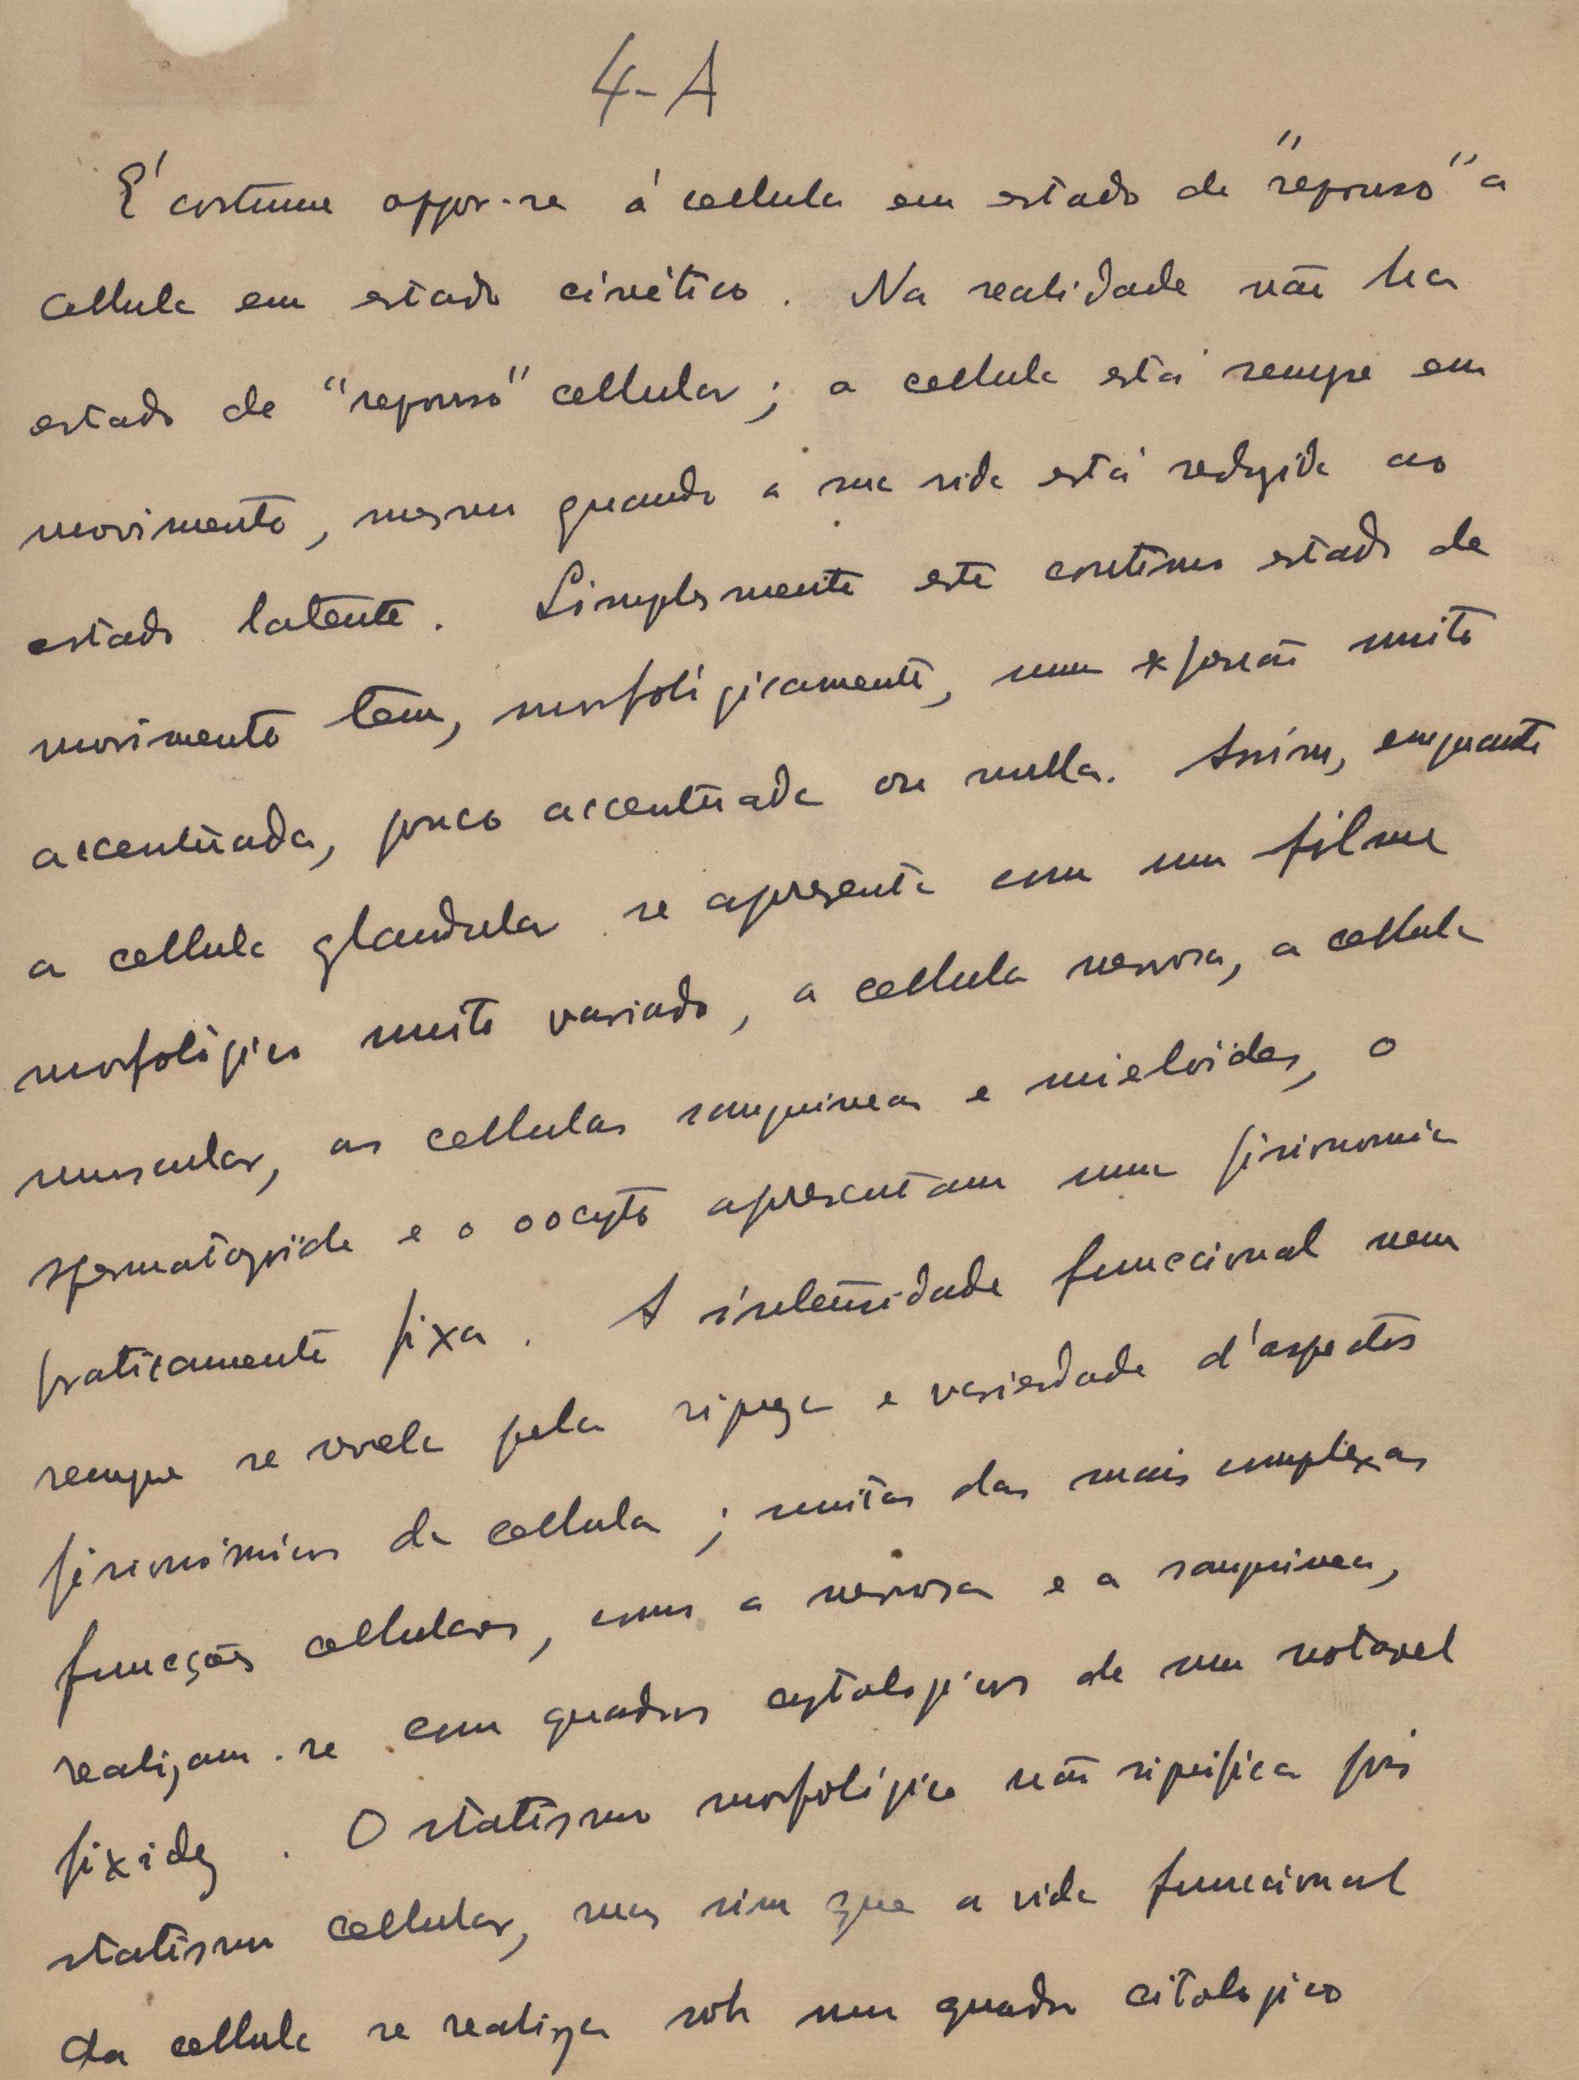 4-A
E' costume oppor-se á cellula em estado de "repouso" a
cellula em estado cinético. Na realidade não ha
estado de "repouso" cellular; a cellula está sempre em
movimento, mesmo quando a sua vida está reduzida ao
estado latente. Simplesmente este continuo estado de
movimento tem, morfológicamente, uma expressão muito
accentuada, pouco accentuada ou nulla. Assim, emquanto
a cellula glandular se apresenta com um filme
morfológico muito variado, a cellula nervosa, a cellula
muscular, as cellulas sanguineas e mieloides, o
spermatozoide e o oocyto apresentam uma fisionomia
praticamente fixa. A intensidade funccional nem
sempre se revela pela riqueza e variedade d'aspectos
fisionómicos da cellula; muitas das mais complexas
funcções cellulares, como a nervosa e a sanguinea,
realizam-se com quadros cytologicos de um notavel
fixidez. O statismo morfológico não significa pois
statismo cellular, mas sim que a vida funccional
da cellula se realiza sob um quadro citologico